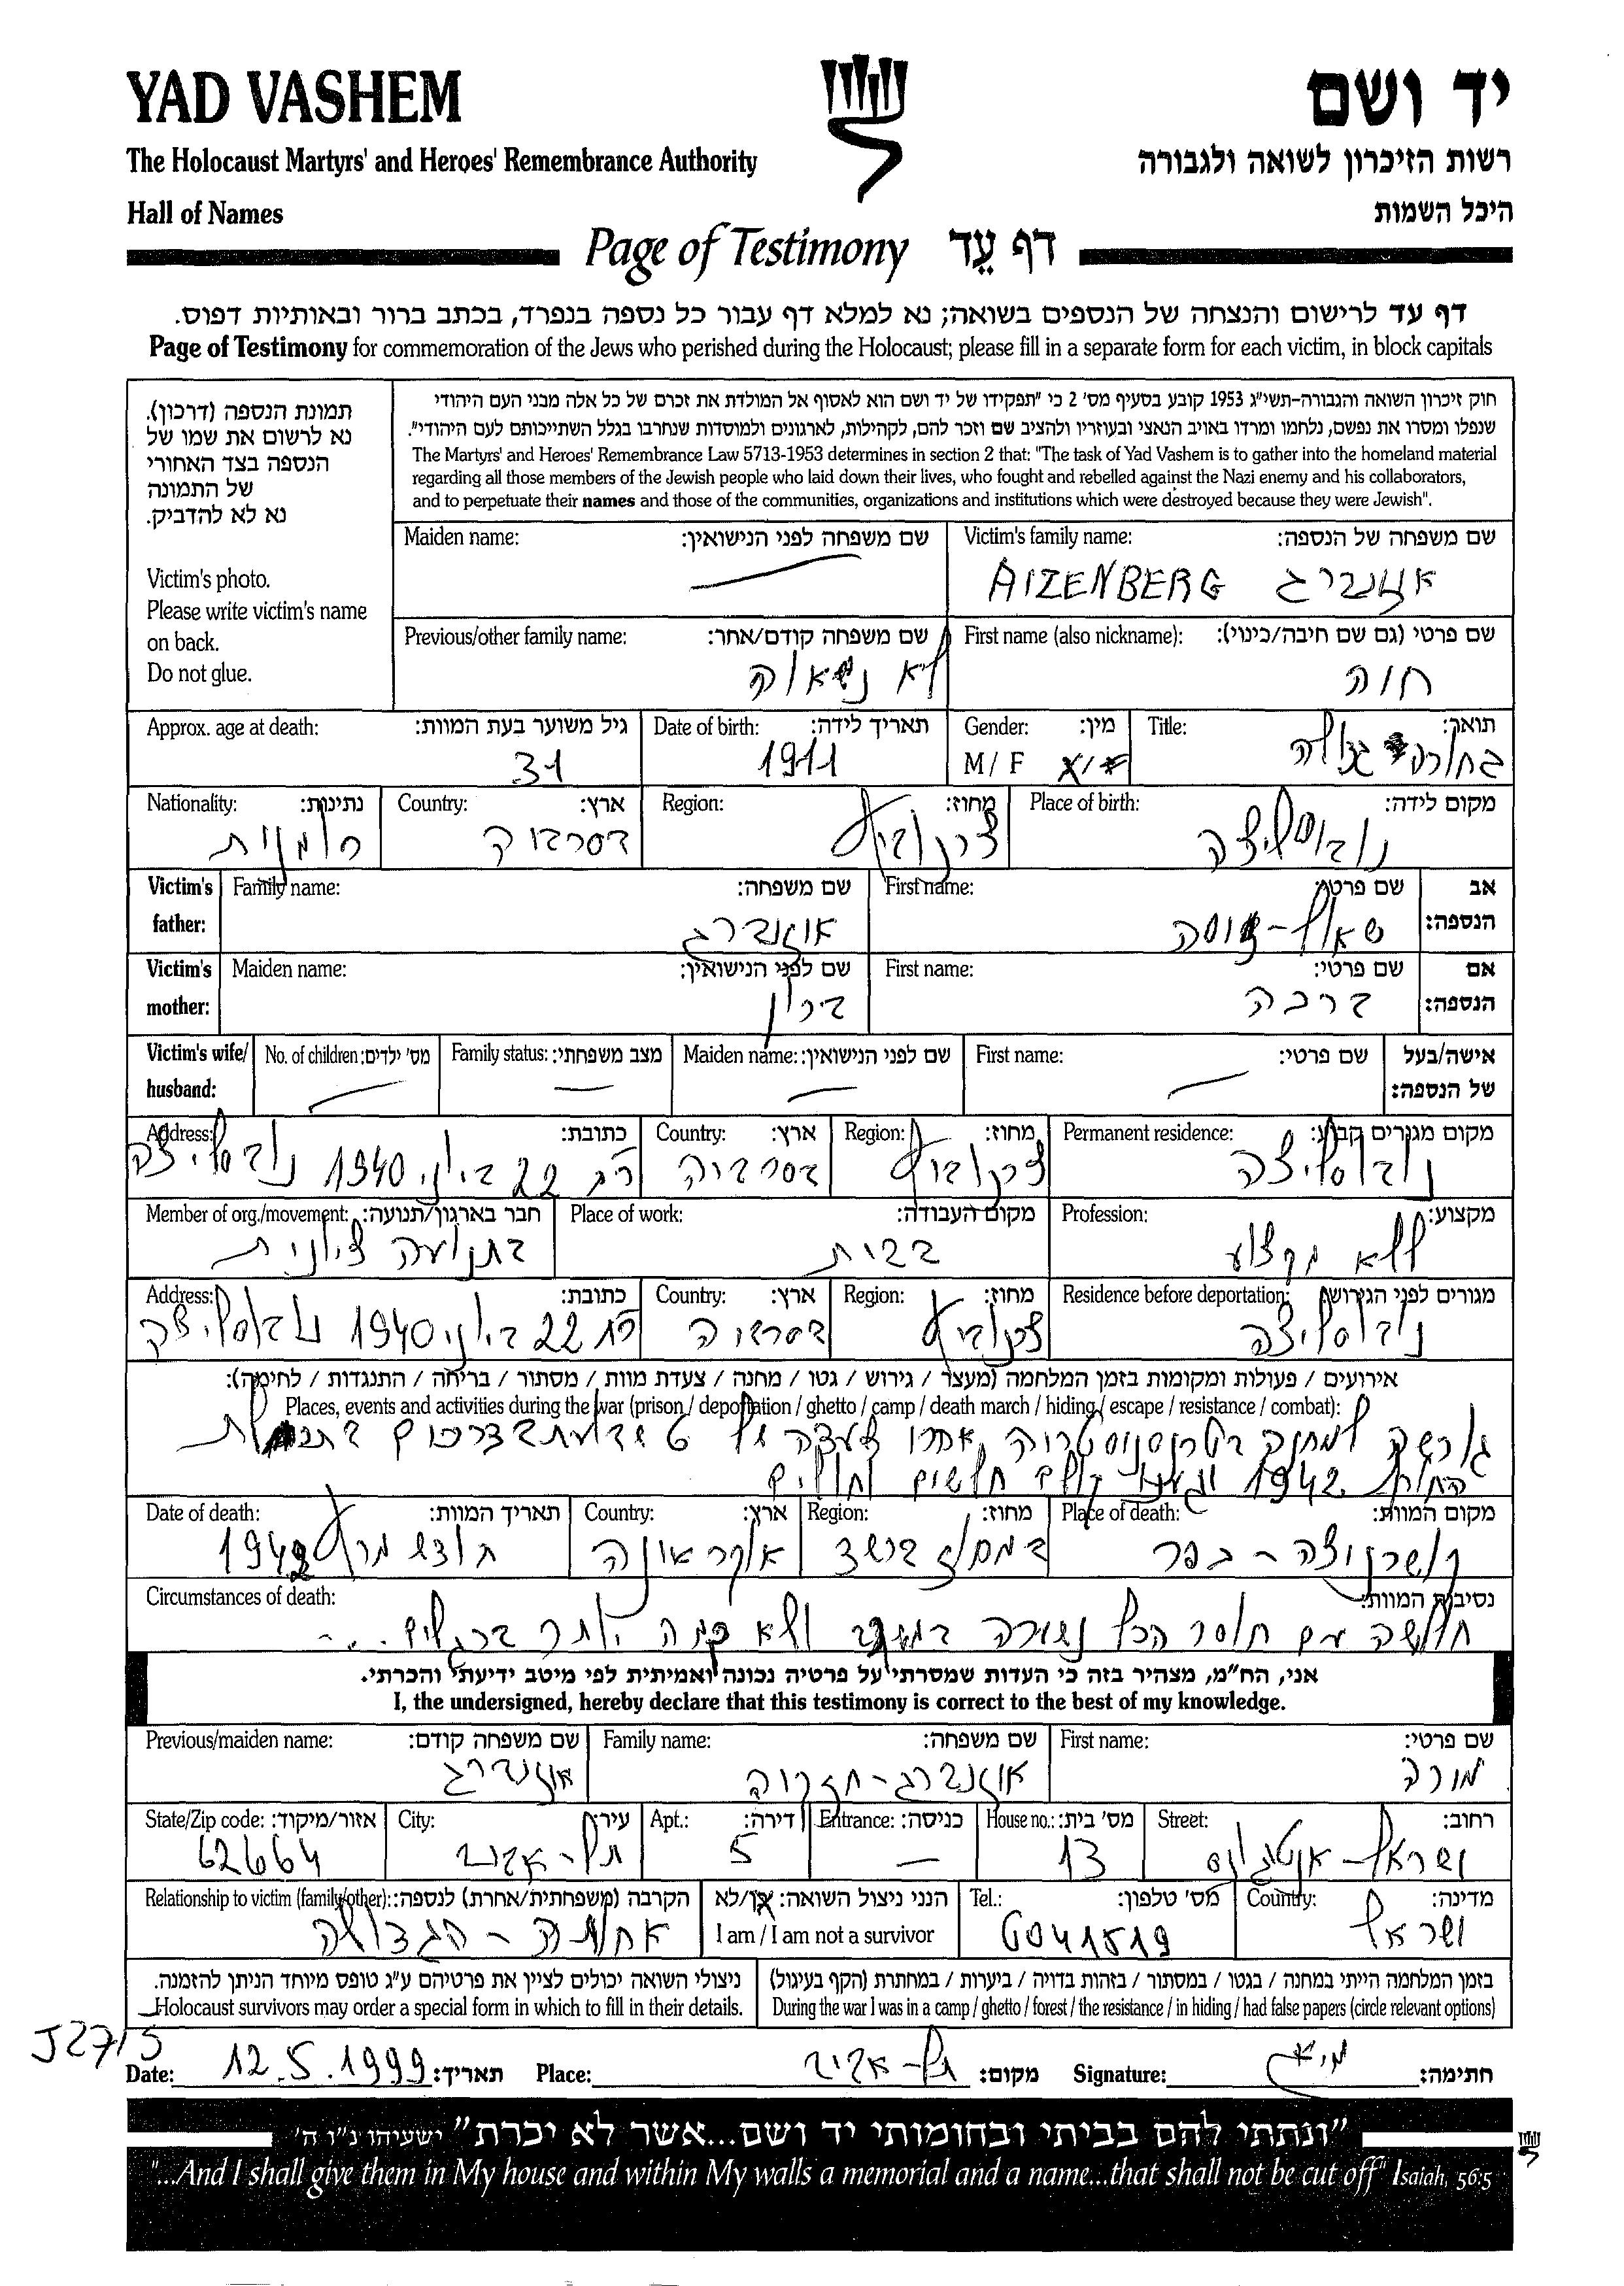 YAD VASHEM
יד ושם
The Holocaust Martyrs' and Heroes' Remembrance Authority
רשות הזיכרון לשואה ולגבורה
Hall of Names
היכל השמות
Page of Testimony דף עֵד
דף עד לרישום והנצחה של הנספים בשואה; נא למלא דף עבור כל נספה בנפרד, בכתב ברור ובאותיות דפוס.
Page of Testimony for commemoration of the Jews who perished during the Holocaust; please fill in a separate form for each victim, in block capitals
תמונת הנספה (דרכון).
נא לרשום את שמו של
הנספה בצד האחורי
של התמונה
נא לא להדביק.
Victim's photo.
Please write victim's name
on back.
Do not glue.
חוק זיכרון השואה והגבורה-תשי"ג 1953 קובע בסעיף מס' 2 כי "תפקידו של יד ושם הוא לאסוף אל המולדת את זכרם של כל אלה מבני העם היהודי
שנפלו ומסרו את נפשם, נלחמו ומרדו באויב הנאצי ובעוזריו ולהציב שם וזכר להם, לקהילות, לארגונים ולמוסדות שנחרבו בגלל השתייכותם לעם היהודי".
The Martyrs' and Heroes' Remembrance Law 5713-1953 determines in section 2 that: "The task of Yad Vashem is to gather into the homeland material
regarding all those members of the Jewish people who laid down their lives, who fought and rebelled against the Nazi enemy and his collaborators,
and to perpetuate their names and those of the communities, organizations and institutions which were destroyed because they were Jewish".
Victim's family name: שם משפחה של הנספה:
AIZENBERG אזנברג
Maiden name: שם משפחה לפני הנישואין:
First name (also nickname): שם פרטי (גם שם חיבה/כינוי):
חוה
Previous/other family name: שם משפחה קודם/אחר:
לא נשאוה
Title: תואר:
Gender: מין:
M / F
Date of birth: תאריך לידה:
1911
Approx. age at death: גיל משוער בעת המוות:
31
Place of birth: מקום לידה:
נובוסליצה
Region: מחוז:
צרנוביץ
Country: ארץ:
בסרביה
Nationality: נתינות:
רומנית
Victim's father: אב הנספה:
First name: שם פרטי:
Family name: שם משפחה:
אזנברג
Victim's mother: אם הנספה:
First name: שם פרטי:
ברכה
Maiden name: שם לפני הנישואין:
ברון
Victim's wife/ husband: אישה/בעל של הנספה:
First name: שם פרטי:
Maiden name: שם לפני הנישואין:
Family status: מצב משפחתי:
No. of children: מס' ילדים:
Permanent residence: מקום מגורים קבוע:
נובוסליצה
Region: מחוז:
צרנוביץ
Country: ארץ:
בסרביה
Address: כתובת:
רח 22 ביוני 1940 נובוסליצה
Profession: מקצוע:
ללא מקצוע
Place of work: מקום העבודה:
בבית
Member of org./movement: חבר בארגון/תנועה:
בתנועה ציונית
Residence before deportation: מגורים לפני הגירוש:
נובוסליצה
Region: מחוז:
צרנוביץ
Country: ארץ:
בסרביה
Address: כתובת:
רח 22 ביוני 1940 נובוסליצה
אירועים / פעולות ומקומות בזמן המלחמה (מעצר / גירוש / גטו / מחנה / צעדת מוות / מסתור / בריחה / התנגדות / לחימה):
Places, events and activities during the war (prison / deportation / ghetto / camp / death march / hiding / escape / resistance / combat):
גורשה למחנה בטרנסניסטריה אחרי צעדה של
1942 חלשים וחולים
Place of death: מקום המוות:
בכפר
Region: מחוז:
במחוז ברשד
Country: ארץ:
אוקראינה
Date of death: תאריך המוות:
חודש מרץ 1942
Circumstances of death: נסיבות המוות:
חולשה עם חוסר הכל נשארה ולא קמה יותר ברגלים...
אני, הח"מ, מצהיר בזה כי העדות שמסרתי על פרטיה נכונה ואמיתית לפי מיטב ידיעתי והכרתי.
I, the undersigned, hereby declare that this testimony is correct to the best of my knowledge.
First name: שם פרטי:
Family name: שם משפחה:
Previous/maiden name: שם משפחה קודם:
אזנברג
Street: רחוב:
House no.: מס' בית:
13
Entrance: כניסה:
Apt.: דירה:
5
City: עיר:
תל-אביב
State/Zip code: אזור/מיקוד:
62664
Country: מדינה:
ישראל
Tel.: מס' טלפון:
6041819
הנני ניצול השואה: כן/לא
I am / I am not a survivor
Relationship to victim (family/other): הקרבה (משפחתית/אחרת) לנספה:
אחותה - הגדולה
בזמן המלחמה הייתי במחנה / בגטו / במסתור / בזהות בדויה / ביערות / במחתרת (הקף בעיגול)
During the war I was in a camp / ghetto / forest / the resistance / in hiding / had false papers (circle relevant options)
ניצולי השואה יכולים לציין את פרטיהם ע"ג טופס מיוחד הניתן להזמנה.
Holocaust survivors may order a special form in which to fill in their details.
J2715
Date: 12.5.1999 תאריך: Place: תל-אביב מקום: Signature: חתימה:
"ונתתי להם בביתי ובחומותי יד ושם...אשר לא יכרת" ישעיהו נ"ו ה'
"...And I shall give them in My house and within My walls a memorial and a name...that shall not be cut off" Isaiah, 56:5